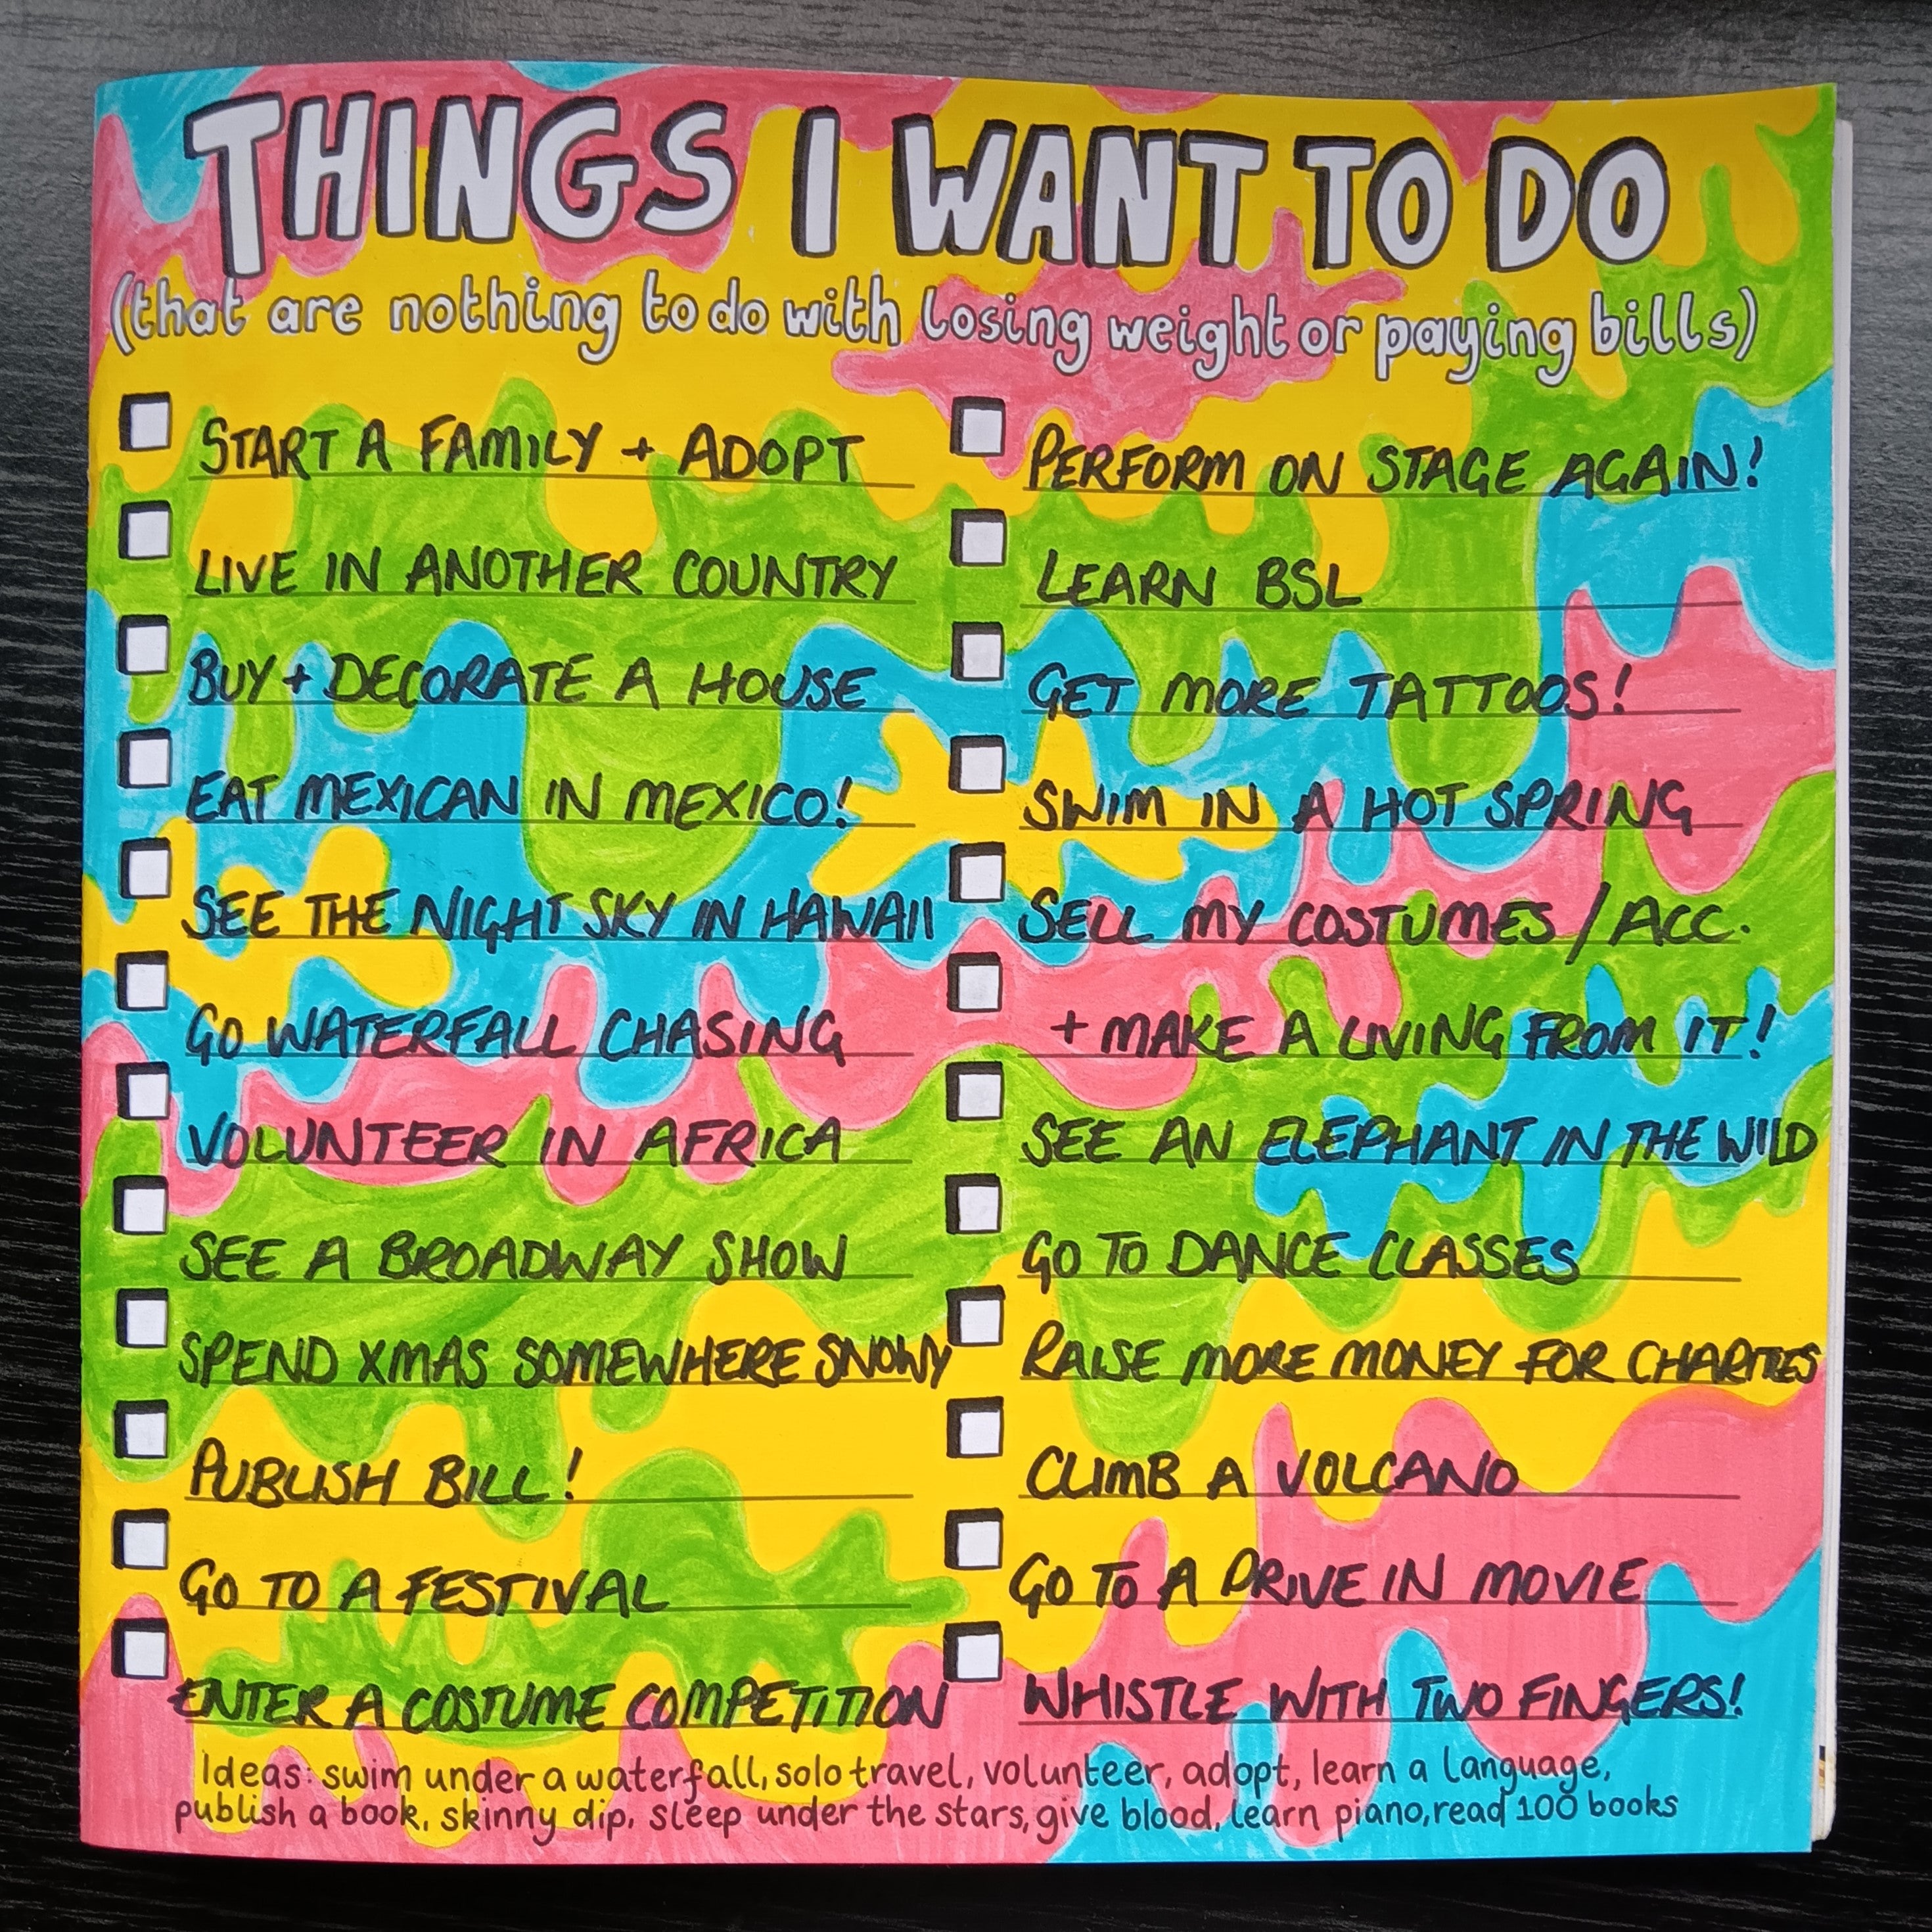 THINGS I WANT TO DO
(that are nothing to do with losing weight or paying bills)
START A FAMILY + ADOPT
LIVE IN ANOTHER COUNTRY
BUY + DECORATE A HOUSE
EAT MEXICAN IN MEXICO!
SEE THE NIGHT SKY IN HAWAII
GO WATERFALL CHASING
VOLUNTEER IN AFRICA
SEE A BROADWAY SHOW
SPEND XMAS SOMEWHERE SNOWY
PUBLISH BILL!
GO TO A FESTIVAL
ENTER A COSTUME COMPETITION
PERFORM ON STAGE AGAIN!
LEARN BSL
GET MORE TATTOOS!
SWIM IN A HOT SPRING
SELL MY COSTUMES / ACC.
+ MAKE A LIVING FROM IT!
SEE AN ELEPHANT IN THE WILD
GO TO DANCE CLASSES
RAISE MORE MONEY FOR CHARITIES
CLIMB A VOLCANO
GO TO A DRIVE IN MOVIE
WHISTLE WITH TWO FINGERS!
Ideas: swim under a waterfall, solo travel, volunteer, adopt, learn a language,
publish a book, skinny dip, sleep under the stars, give blood, learn piano, read 100 books